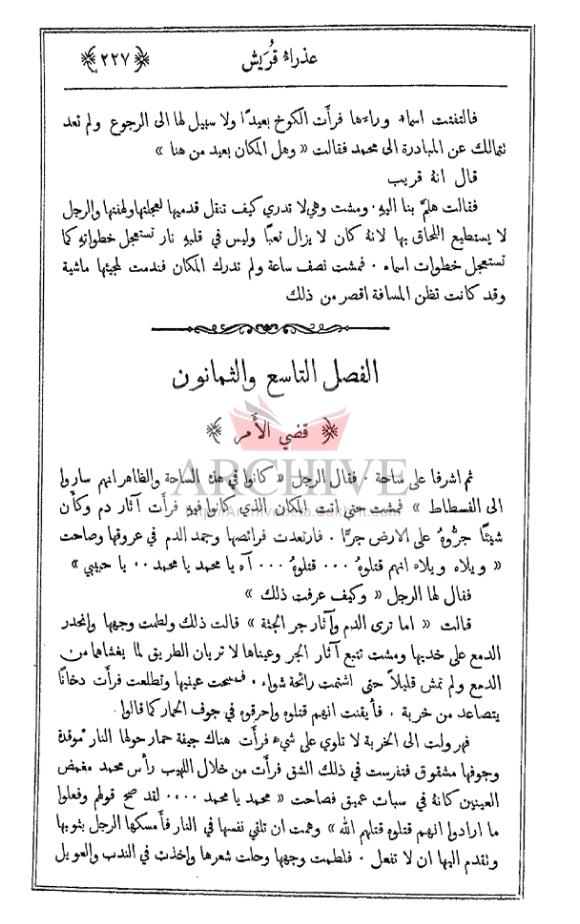 عذراء قُرَيش ﴿ ٢٢٧ ﴾
فالتفتت اسماء وراءها فرأَت الكوخ بعيدًا ولا سبيل لها الى الرجوع ولم تعد
تتمالك عن المبادرة الى محمد فقالت « وهل المكان بعيد من هنا »
قال انهُ قريب
فقالت هلمَّ بنا اليهِ. ومشت وهي لا تدري كيف تنقل قدميها لعجلتها ولهفتها والرجل
لا يستطيع اللحاق بها لانهُ كان لا يزال تعبًا وليس في قلبهِ نار تستعجل خطواتهِ كما
تستعجل خطوات اسماء . فمشت نصف ساعة ولم تدرك المكان فندمت لمجيئها ماشية
وقد كانت تظن المسافة اقصر من ذلك
الفصل التاسع والثمانون
﴿ قضي الأَمر ﴾
ARCHIVE
ثم اشرفا على ساحة . فقال الرجل « كانوا في هذه الساحة والظاهر انهم ساروا
الى الفسطاط » فمشت حتى اتت المكان الذي كانوا فيهِ فرأَت آثار دم وكأَن
شيئًا جرُّوهُ على الارض جرًّا . فارتعدت فرائصها وجمد الدم في عروقها وصاحت
« ويلاه ويلاه انهم قتلوهُ ... قتلوهُ ... آه يا محمد يا محمد .. يا حبيبي »
فقال لها الرجل « وكيف عرفت ذلك »
قالت « اما ترى الدم وآثار جر الجثة » قالت ذلك ولطمت وجهها وانحدر
الدمع على خديها ومشت تتبع آثار الجر وعيناها لا تريان الطريق لما يغشاهما من
الدمع ولم تمش قليلاً حتى اشتمت رائحة شواء . فمسحت عينيها وتطلعت فرأَت دخانًا
يتصاعد من خربة . فأيقنت انهم قتلوه واحرقوه في جوف الحمار كما قالوا.
فهرولت الى الخربة لا تلوي على شيء فرأَت هناك جيفة حمار حولها النار موقدة
وجوفها مشقوق فتفرست في ذلك الشق فرأَت من خلال اللهيب رأس محمد مغمض
العينين كانهُ في سبات عميق فصاحت « محمد يا محمد .... لقد صح قولهم وفعلوا
ما ارادوا انهم قتلوه قتلهم الله » وهمت ان تلقي نفسها في النار فأمسكها الرجل بثوبها
وتقدم اليها ان لا تفعل . فلطمت وجهها وحلت شعرها واخذت في الندب والعويل